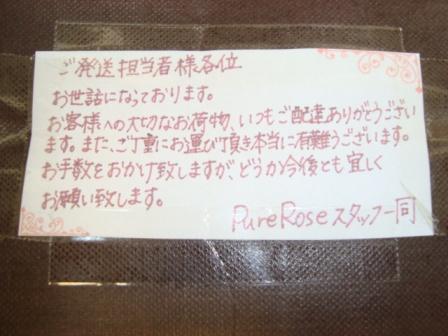 ご発送担当者様各位
お世話になっております。
お客様への大切なお荷物、いつもご配達ありがとうござい
ます。また、ご丁重にお運び頂き本当に有難うございます。
お手数をおかけ致しますが、どうか今後とも宜しく
お願い致します。
PureRoseスタッフ一同